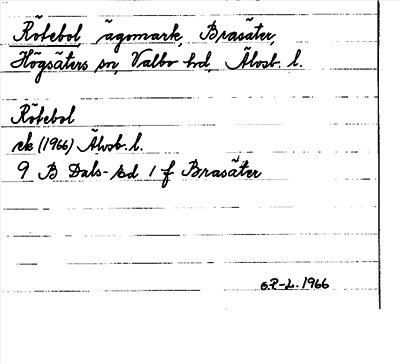 Rötebol, ägomark, Brasäter,
Högsäters sn, Valbo hd, Älvsb. l.
Rötebol
ek (1966) Älvsb. l.
9 B Dals-Ed 1 f Brasäter
G.P-L. 1966